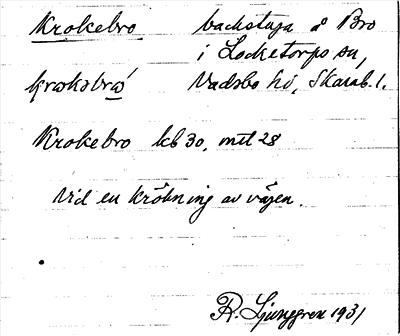 Krokebro backstuga å Bro
i Locketorps sn,
krɷkəbrɷ́ Vadsbo hd, Skarab. l.
Krokebro kb 30, mtl 28
Vid en krökning av vägen.
R. Ljunggren 1931